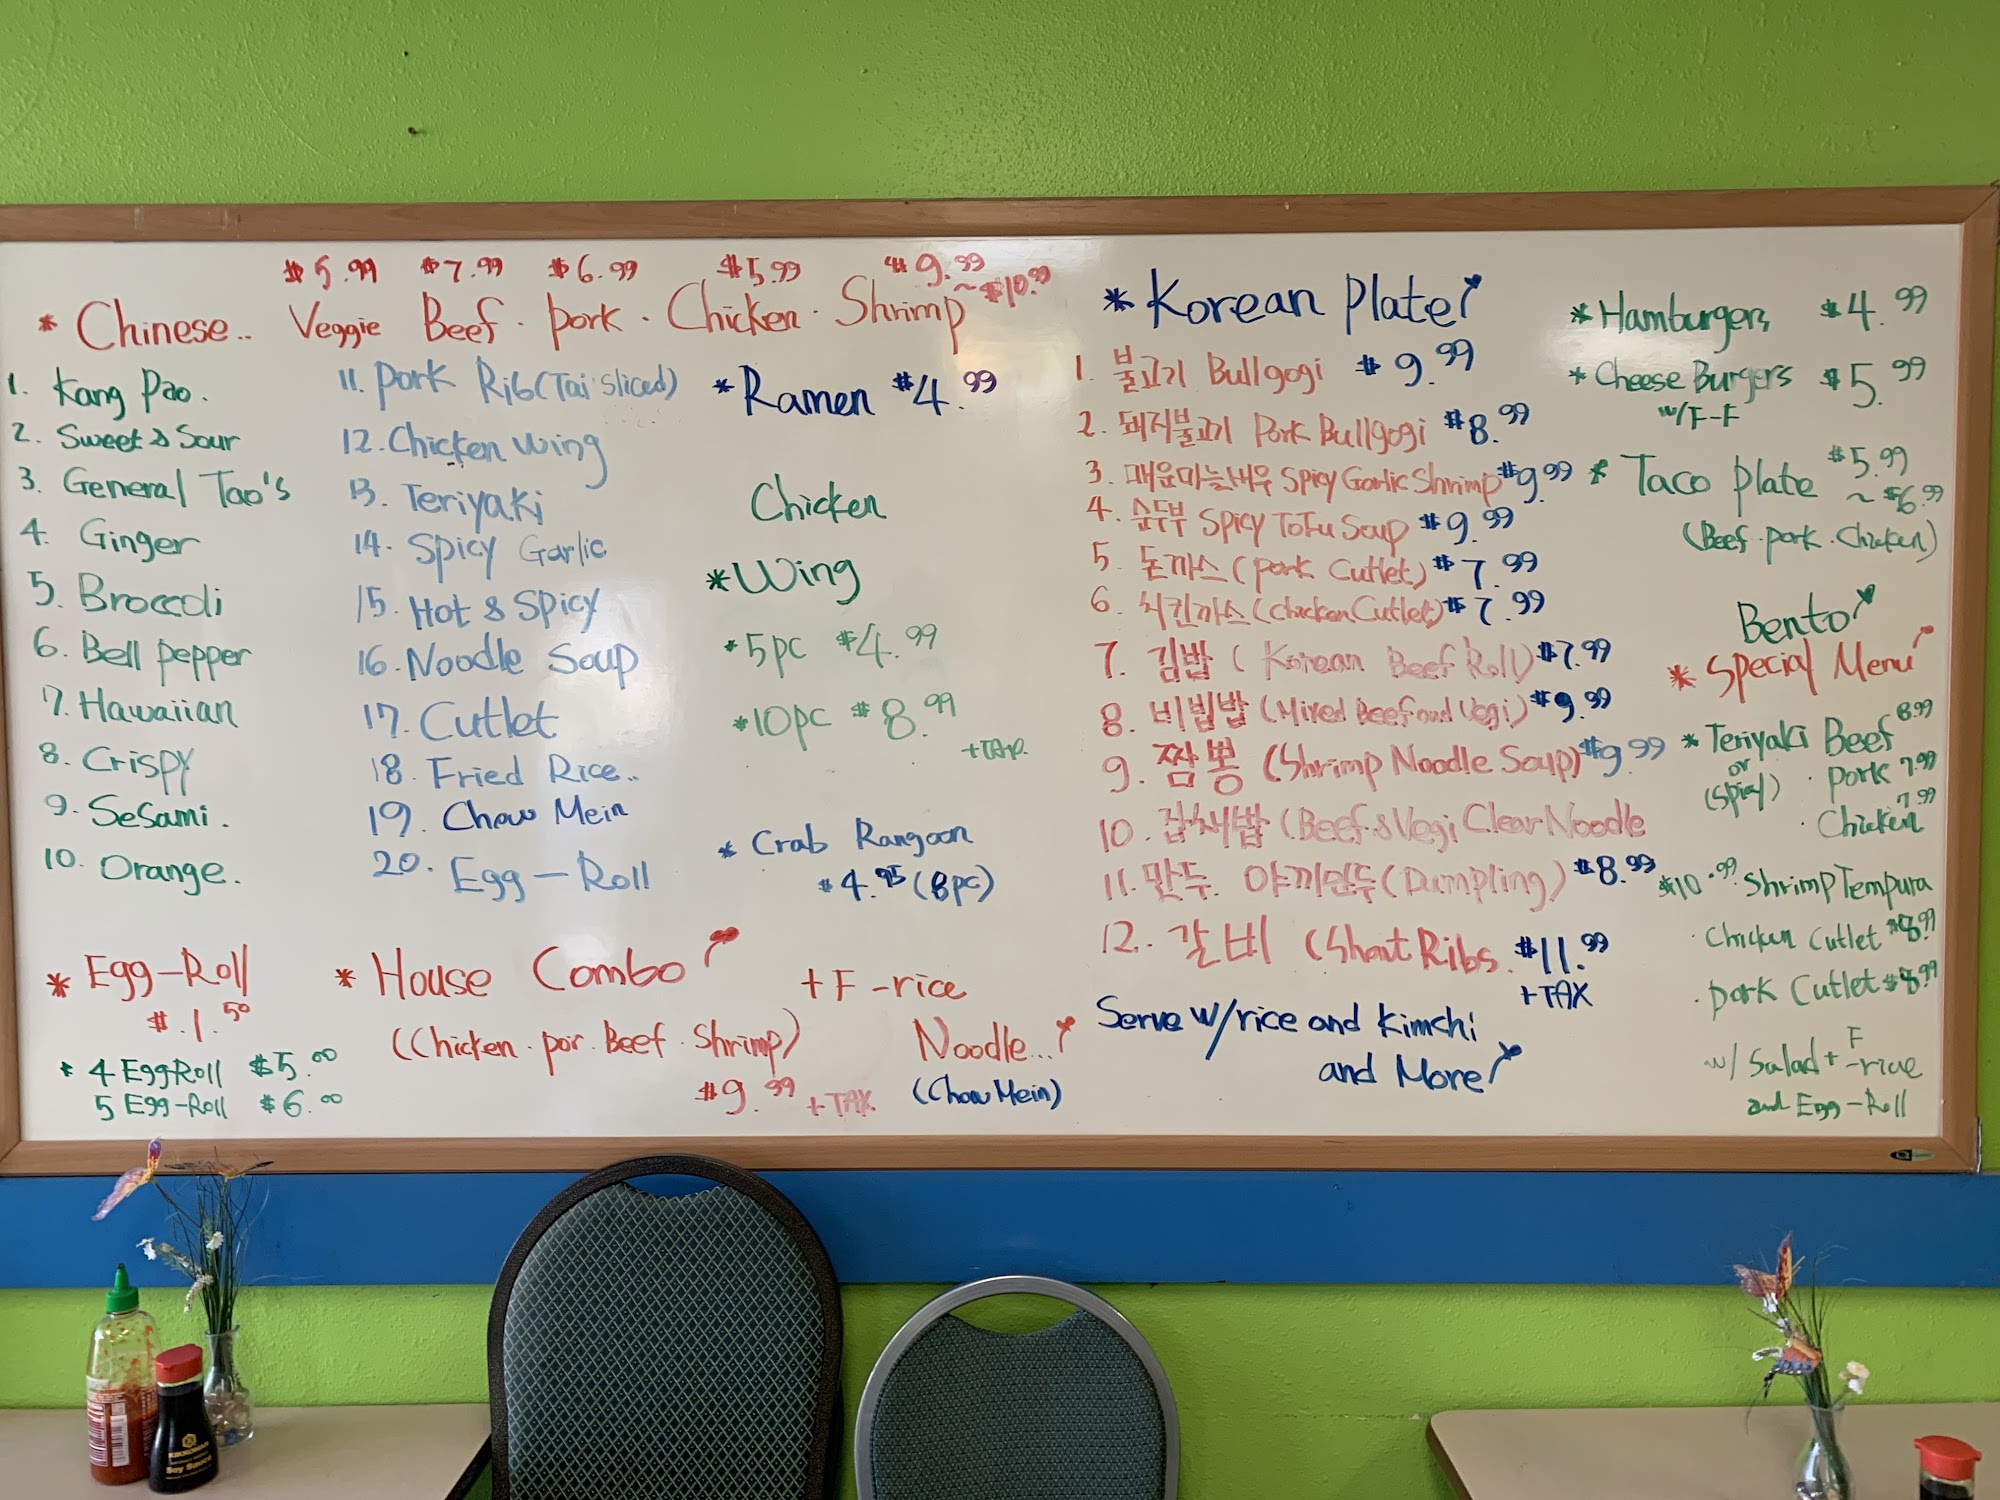 $5.99 $7.99 $6.99 $5.99 $9.99 ~ $10.99
* Chinese.. Veggie Beef · pork · Chicken · Shrimp
1. Kang Pao.
2. Sweet & Sour
3. General Tao's
4. Ginger
5. Broccoli
6. Bell pepper
7. Hawaiian
8. Crispy
9. Sesami.
10. Orange.
11. Pork Rib (Tai Sliced)
12. Chicken Wing
13. Teriyaki
14. Spicy Garlic
15. Hot & Spicy
16. Noodle Soup
17. Cutlet
18. Fried Rice..
19. Chow Mein
20. Egg-Roll
* Ramen $4.99
Chicken
* Wing
* 5pc $4.99
* 10pc $8.99
+TAX
* Crab Rangoon
$4.95 (8pc)
* Egg-Roll
$.1.50
* 4 EggRoll $5.00
5 Egg-Roll $6.00
* House Combo! + F-rice
(Chicken · por · Beef · Shrimp) Noodle...!
$9.99 +TAX (Chow Mein)
* Korean Plate!
1. 불고기 Bullgogi $9.99
2. 돼지불고기 Pork Bullgogi $8.99
3. 매운마늘새우 Spicy Garlic Shrimp $9.99
4. 순두부 Spicy ToFu Soup $9.99
5. 돈까스 (pork Cutlet) $7.99
6. 치킨까스 (Chicken Cutlet) $7.99
7. 김밥 (Korean Beef Roll) $7.99
8. 비빔밥 (Mixed Beef and Vegi) $9.99
9. 짬뽕 (Shrimp Noodle Soup) $9.99
10. 잡채밥 (Beef & Vegi Clear Noodle
11. 만두. 야끼만두 (Dumpling) $8.99
12. 갈비 (Short Ribs. $11.99
+TAX
Serve w/rice and Kimchi
and More!
* Hamburgers $4.99
* Cheese Burgers $5.99
w/F-F
* Taco plate $5.99 ~ $6.99
(Beef · pork · Chicken)
Bento!
* Special Menu!
* Teriyaki Beef 8.99
or
(Spicy) · pork 7.99
· Chicken 7.99
$10.99 Shrimp Tempura
· Chicken Cutlet $8.99
· pork Cutlet $8.99
w/ Salad + F-rice
and Egg-Roll
KIKKOMAN
Soy Sauce